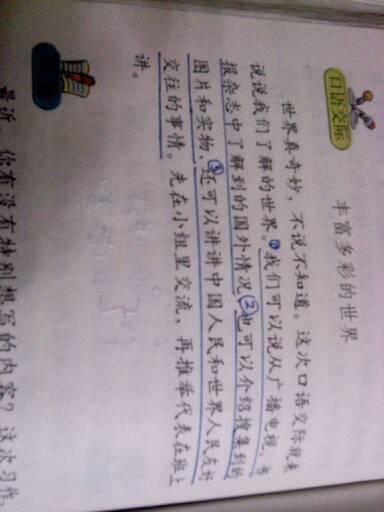 口语交际
丰富多彩的世界
世界真奇妙，不说不知道。这次口语交际就来
说说我们了解的世界。①我们可以说从广播电视、书
报杂志中了解到的国外情况②也可以介绍搜集到的
图片和实物，③还可以讲讲中国人民和世界人民友好
交往的事情。先在小组里交流，再推举代表在班上
讲。
最近，你有没有特别想写的内容？这次习作，